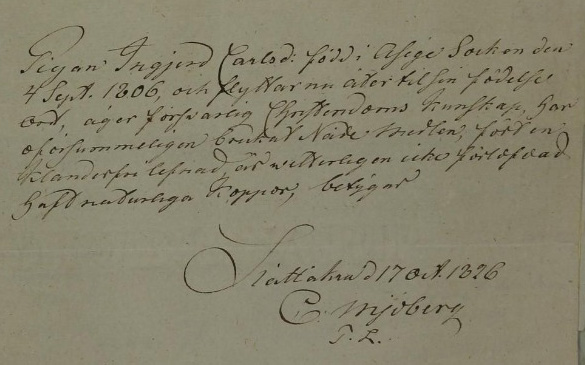 Pigan Ingjerd Carlsd: född i Asige Socken den
4 Sept. 1806, och flyttar nu åter til sin födelse
ort, äger försvarlig Christendoms Kunskap, har
oförsummeligen brukat Nåde medlen, fört en
klanderfri lefnad, är wetterligen icke förlofvad
haft naturliga Koppor, betygar
Slättåkra d 17 Oct. 1826
C. Mjöberg